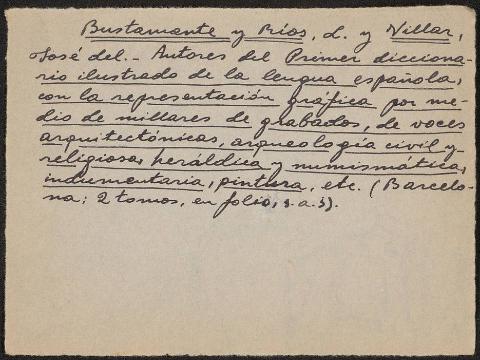 Bustamante y Ríos, L. y Villar,
José del. - Autores del Primer dicciona-
rio ilustrado de la lengua española,
con la representación gráfica por me-
dio de millares de grabados, de voces
arquitectónicas, arqueología civil y
religiosa, heráldica y numismática,
indumentaria, pintura, etc. (Barcelo-
na; 2 tomos, en folio, s. a.).